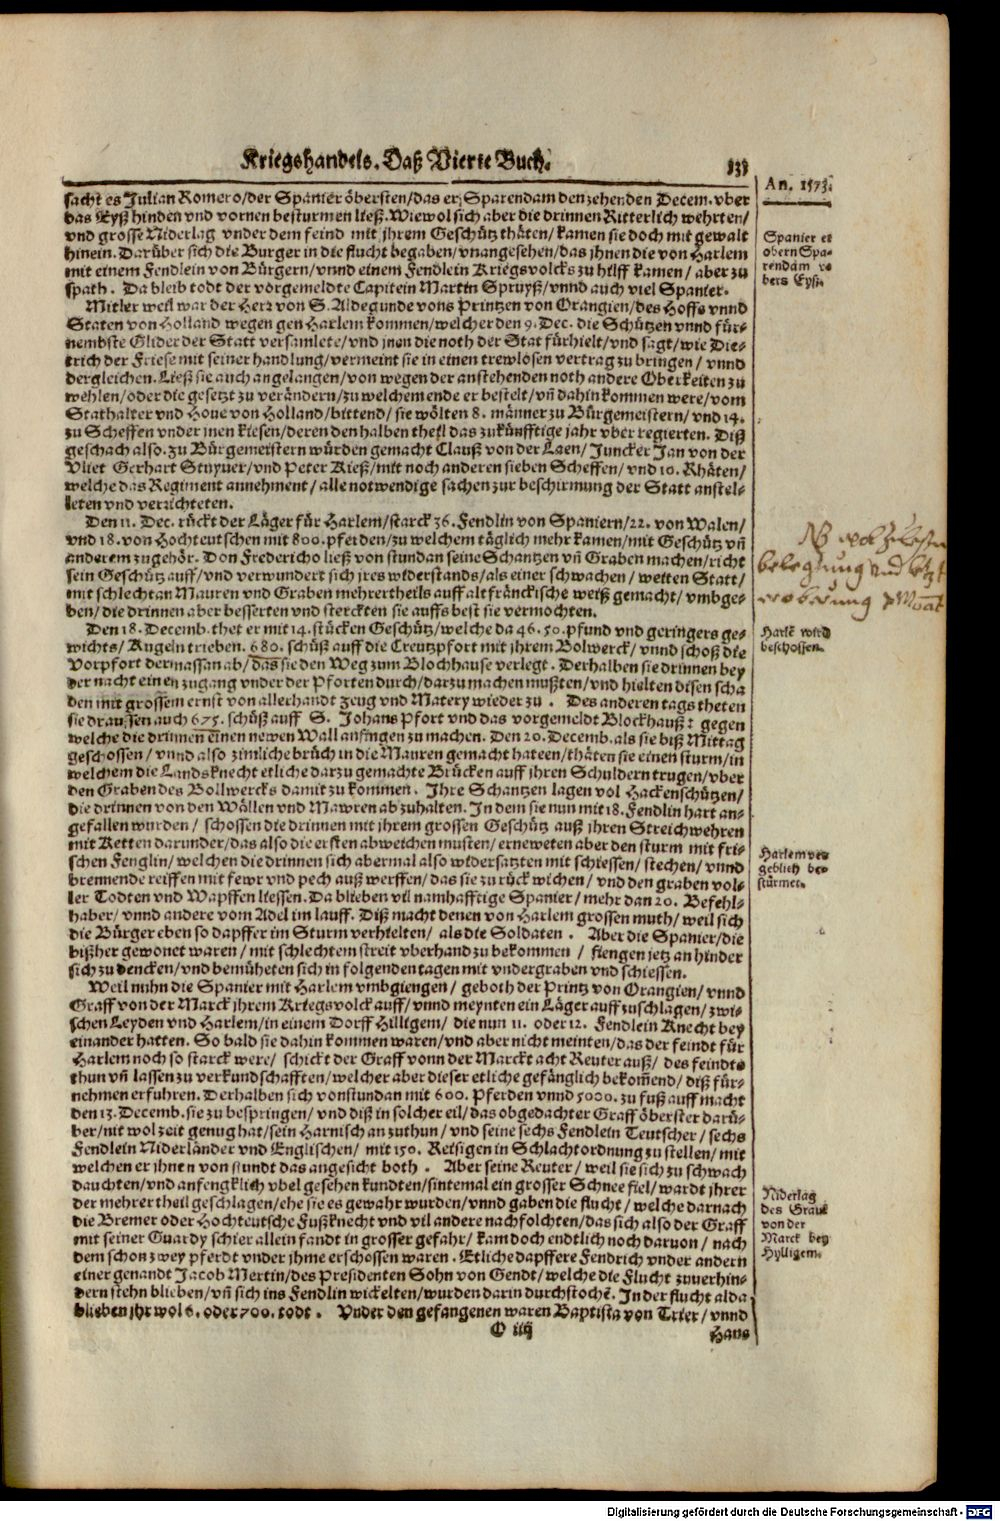 Kriegshandels. Daß Vierte Buch.
An. 1573.
sacht es Julian Romero/ der Spanier öbersten/ das er Sparendam den zehenden Decem. vber
das Eyß hinden vnd vornen besturmen ließ. Wiewol sich aber die drinnen Ritterlich wehrten/
vnd grosse Niderlag vnder dem feind mit jhrem Geschütz thäten/ kamen sie doch mit gewalt
hinein. Darüber sich die Burger in die flucht begaben/ vnangesehen/ das jhnen die von Harlem
mit einem Fendlein von Bürgern/ vnnd einem Fendlein Kriegsvolcks zu hilff kamen/ aber zu
spath. Da bleib todt der vorgemeldte Capitein Martin Spruyß/ vnnd auch viel Spanier.
Spanier er
obern Spa-
rendam v-
bers Eyß.
Mitler weil war der Herr von S. Aldegunde vons Printzen von Orangien/ des Hoffs vnnd
Staten von Holland wegen gen Harlem kommen/ welcher den 9. Dec. die Schützen vnnd für-
nembste Glider der Statt versamlete/ vnd jnen die noth der Stat fürhielt/ vnd sagt/ wie Die-
trich der Friese mit seiner handlung/ vermeint sie in einen trewlosen vertrag zu bringen/ vnnd
dergleichen. Ließ sie auch angelangen/ von wegen der anstehenden noth andere Oberkeiten zu
wehlen/ oder die gesetzt zu verändern/ zu welchem ende er bestelt/ vñ dahin kommen were/ vom
Stathalter vnd Houe von Holland/ bittend/ sie wölten 8. männer zu Bürgemeistern/ vnd 14.
zu Scheffen vnder jnen kiesen/ deren den halben theil das zukünfftige jahr vber regierten. Diß
geschach also. zu Bürgemeistern würden gemacht Clauß von der Laen/ Juncker Jan von der
Vliet Gerhart Stuyuer/ vnd Peter Kieß/ mit noch anderen sieben Scheffen/ vnd 10. Rhäten/
welche das Regiment annehment/ alle notwendige sachen zur beschirmung der Statt anstel-
leten vnd verrichteten.
Den 11. Dec. rückt der Läger für Harlem/ starck 36. Fendlin von Spaniern/ 22. von Walen/
vnd 18. von Hochteutschen mit 800. pferden/ zu welchem täglich mehr kamen/ mit Geschütz vñ
anderem zugehör. Don Fredericho ließ von stundan seine Schantzen vñ Graben machen/ richt
sein Geschütz auff/ vnd verwundert sich jres widerstands/ als einer schwachen/ weiten Statt/
mit schlechtan Mauren vnd Graben mehrertheils auff altfränckische weiß gemacht/ vmbge-
ben/ die drinnen aber besserten vnd sterckten sie auffs best sie vermochten.
belegerung vnd
Den 18. Decemb. thet er mit 14. stücken Geschütz/ welche da 46. 50. pfund vnd geringers ge-
wichts/ Kugeln trieben. 680. schüß auff die Creutzpfort mit jhrem Bolwerck/ vnnd schoß die
Vorpfort dermassan ab/ das sie den Weg zum Blochhause verlegt. Derhalben sie drinnen bey
der nacht einen zugang vnder der Pforten durch/ darzu machen mußten/ vnd hielten disen scha
den mit grossem ernst von allerhandt zeug vnd Matery wieder zu. Des anderen tags theten
sie draussen auch 675. schüß auff S. Johans Pfort vnd das vorgemeldt Blockhauß: gegen
welche die drinnen einen newen Wall anfingen zu machen. Den 20. Decemb. als sie biß Mittag
geschossen/ vnnd also zimliche brüch in die Mauren gemacht hateen/ thäten sie einen sturm/ in
welchem die Landsknecht etliche darzu gemachte Brücken auff jhren Schuldern trugen/ vber
den Graben des Bollwercks damit zu kommen. Ihre Schantzen lagen vol Hackenschützen/
die drinnen von den Wällen vnd Mawren abzuhalten. In dem sie nun mit 18. Fendlin hart an-
gefallen wurden/ schossen die drinnen mit jhrem grossen Geschütz auß jhren Streichwehren
mit Ketten darunder/ das also die ersten abweichen musten/ erneweten aber den sturm mit fri-
schen Fenglin/ welchen die drinnen sich abermal also widersatzten mit schiessen/ stechen/ vnnd
brennende reiffen mit fewr vnd pech auß werffen/ das sie zu rück wichen/ vnd den graben vol-
ler Todten vnd Wapffen liessen. Da blieben vil namhafftige Spanier/ mehr dan 20. Befehl-
haber/ vnnd andere vom Adel im lauff. Diß macht denen von Harlem grossen muth/ weil sich
die Bürger eben so dapffer im Sturm verhielten/ als die Soldaten. Aber die Spanier/ die
bißher gewonet waren/ mit schlechtem streit vberhand zu bekommen/ fiengen jetz an hinder
sich zu dencken/ vnd bemüheten sich in folgenden tagen mit vndergraben vnd schiessen.
Harlē wird
beschossen.
Harlem ver
geblich be-
stürmet.
Weil nuhn die Spanier mit Harlem vmbgiengen/ geboth der Printz von Orangien/ vnnd
Graff von der Marck jhrem Kriegsvolck auff/ vnnd meynten ein Läger auff zuschlagen/ zwi-
schen Leyden vnd Harlem/ in einem Dorff Hilligem/ die nun 11. oder 12. Fendlein Knecht bey
einander hatten. So bald sie dahin kommen waren/ vnd aber nicht meinten/ das der feindt für
Harlem noch so starck were/ schickt der Graff vonn der Marckt acht Reuter auß/ des feindts
thun vñ lassen zu verkundschafften/ welcher aber dieser etliche gefänglich bekom̃end/ diß für-
nehmen erfuhren. Derhalben sich vonstundan mit 600. Pferden vnnd 5000. zu fuß auff macht
den 13. Decemb. sie zu bespringen/ vnd diß in solcher eil/ das obgedachter Graff öberster darü-
ber/ nit wol zeit genug hat/ sein Harnisch an zuthun/ vnd seine sechs Fendlein Teutscher/ sechs
Fendlein Niderländer vnd Englischen/ mit 150. Reisigen in Schlachtordnung zu stellen/ mit
welchen er jhnen von stundt das angesicht both. Aber seine Reuter/ weil sie sich zu schwach
dauchten/ vnd anfengklich vbel gesehen kundten/ sintemal ein grosser Schnee fiel/ wardt jhrer
der mehrer theil geschlagen/ ehe sie es gewahr wurden/ vnnd gaben die flucht/ welche darnach
die Bremer oder Hochteutsche Fußknecht vnd vil andere nachfolchten/ das sich also der Graff
mit seiner Guardy schier allein fandt in grosser gefahr/ kam doch endtlich noch daruon/ nach
dem schon zwey pferdt vnder jhme erschossen waren. Etliche dapffere Fendrich vnder andern
einer genandt Jacob Mertin/ des Presidenten Sohn von Gendt/ welche die Flucht zuverhin-
dern stehn blieben/ vñ sich ins Fendlin wickelten/ wurden darin durchstochē. In der flucht alda
blieben jhr wol 6. oder 700. todt. Vnder den gefangenen waren Baptista von Trier/ vnnd
Niderlag
des Graue
von der
Marck bey
Hylligem.
O iiij
Hans
Digitalisierung gefördert durch die Deutsche Forschungsgemeinschaft - DFG